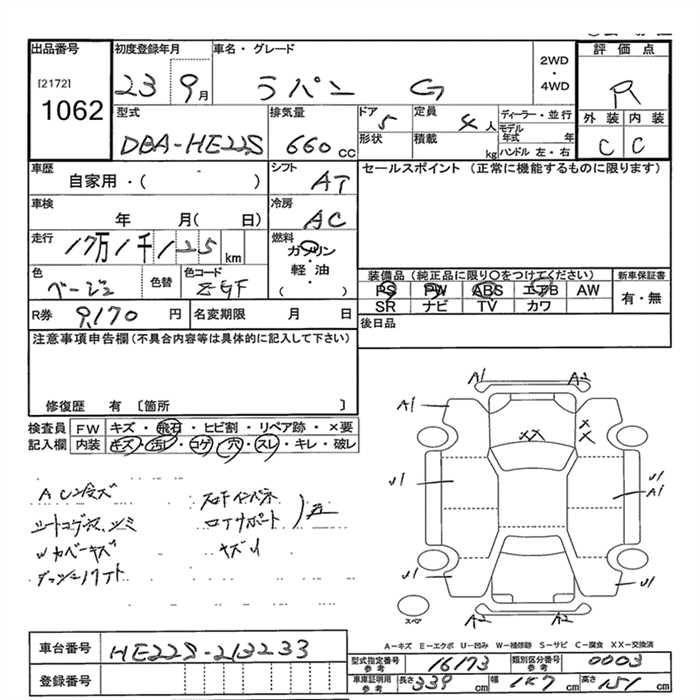 出品番号
[2172]
1062
初度登録年月
23 9月
車名・グレード
ラパン G
2WD
・
4WD
評価点
R
外装 内装
C C
型式
DBA-HE22S
排気量
660 cc
ドア
5
形状
定員
4人
積載
kg
ディーラー・並行
モデル年式 年
ハンドル 左・右
車歴
自家用・( )
シフト
AT
セールスポイント (正常に機能するものに限ります)
車検
年 月( 日)
冷房
AC
走行
17万1千125 km
燃料
ガソリン
・
軽油
( )
色
ベージュ
色替
色コード
ZGF
装備品(純正品に限り○をつけてください)
新車保証書
PS PW ABS エアB AW
SR ナビ TV カワ
有・無
R券 9,170 円
名変期限 月 日
後日品
注意事項申告欄(不具合内容等は具体的に記入して下さい)
修復歴 有 〔箇所 〕
検査員記入欄
FW キズ・飛石・ヒビ割・リペア跡・×要
内装 キズ・汚レ・コゲ・穴・スレ・キレ・破レ
ACン冷ズ
Wカバーキズ
A1 A2
A1
XX
X
X
U1 U1
A1
U1 U1
スペア
A2 A2
A-キズ E-エクボ U-凹み W-補修跡 S-サビ C-腐食 XX-交換済
車台番号 HE22S-213233
登録番号
型式指定番号参考 16173
類別区分番号参考 0003
車庫証明用参考 長さ 339 cm 幅 147 cm 高さ 151 cm